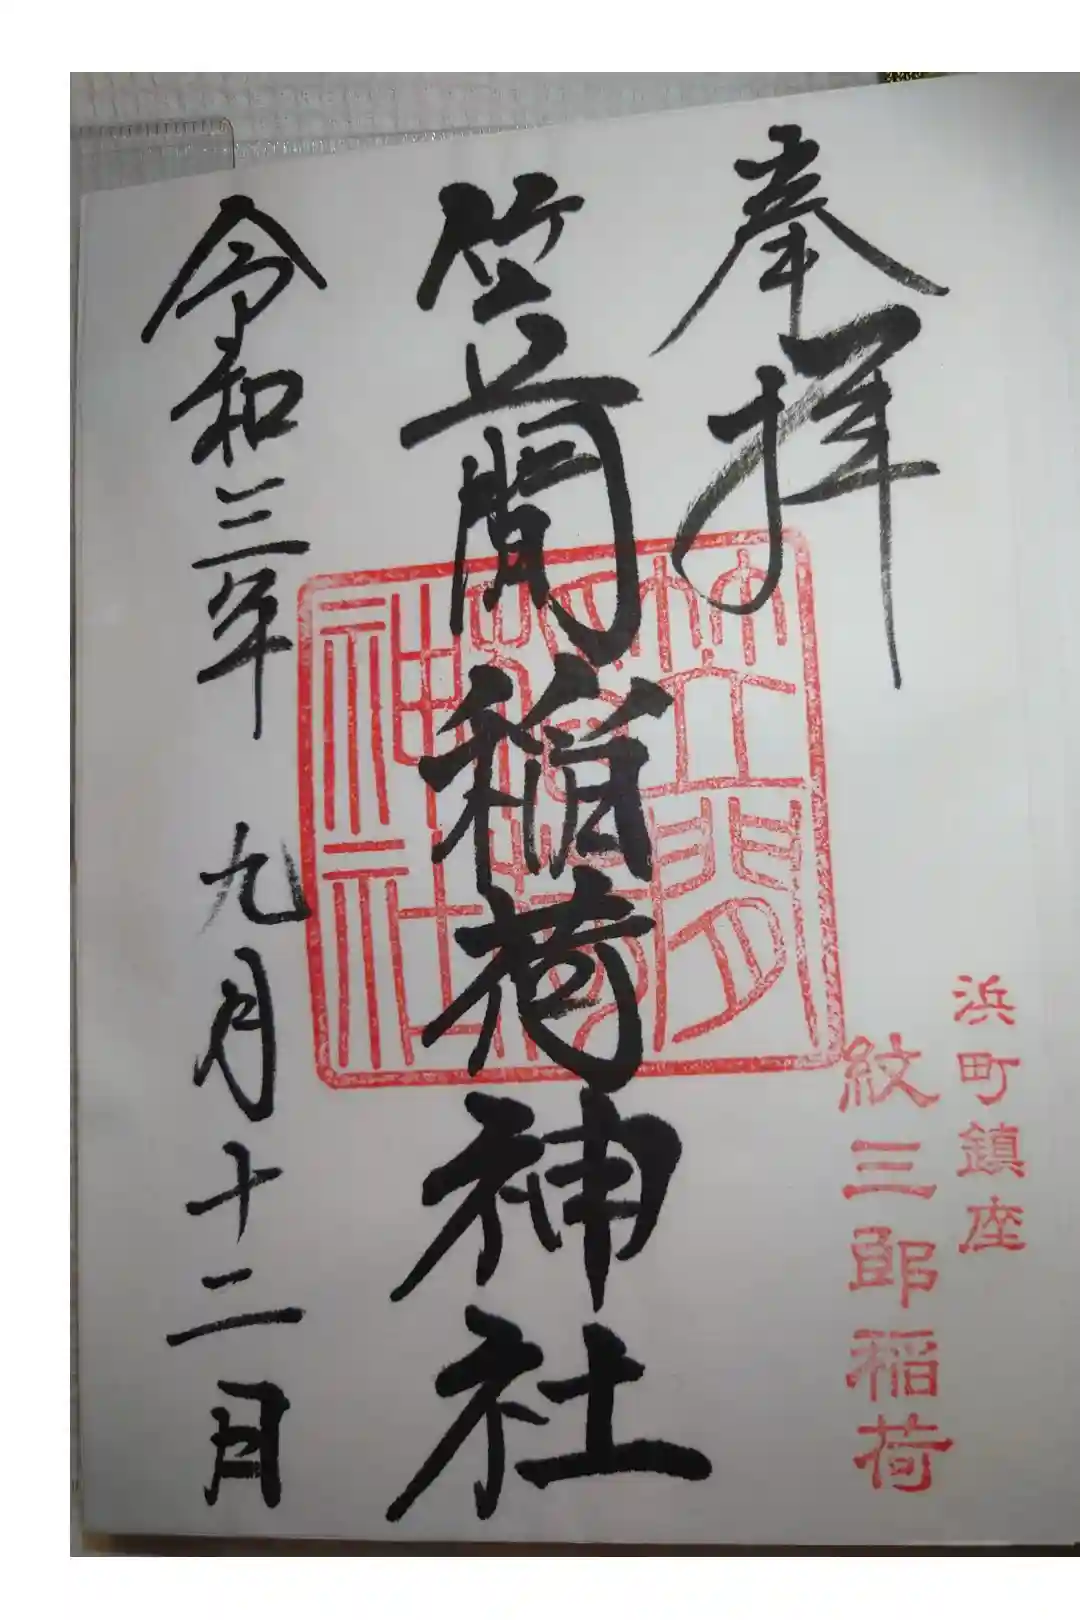 奉拝
浜町鎮座
紋三郎稲荷
笠間稲荷神社
笠間
稲荷
神社
令和三年 九月十二日